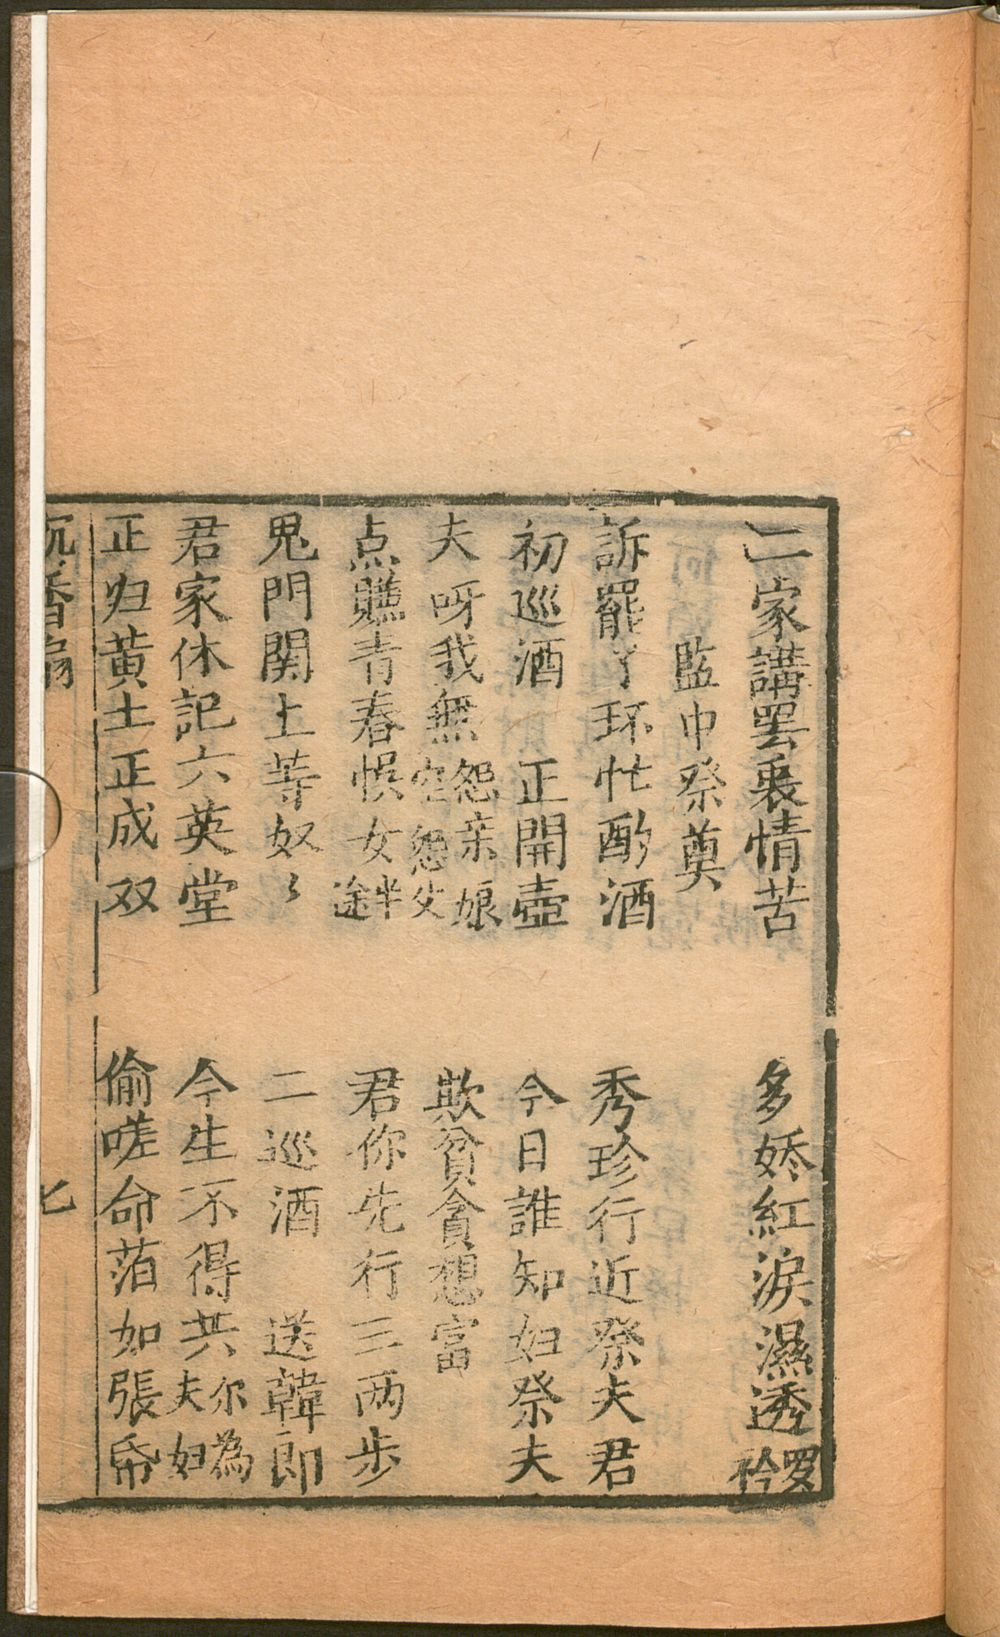 二家講罢裏情苦　多娇紅淚濕透罗衿
監中祭奠
訴罷丫环忙酌酒　秀珍行近祭夫君
初巡酒　正開壺　今日誰知妇祭夫
夫呀我無怨亲娘空怨父　欺貧貪想富
点瞧青春悞女半途　君你先行三两步
鬼門関上等奴〻　二巡酒　送韓郎
君家休記六英堂　今生不得共尔為夫妇
正归黄土正成双　偷嗟命萡如張帋
沉香扇　七